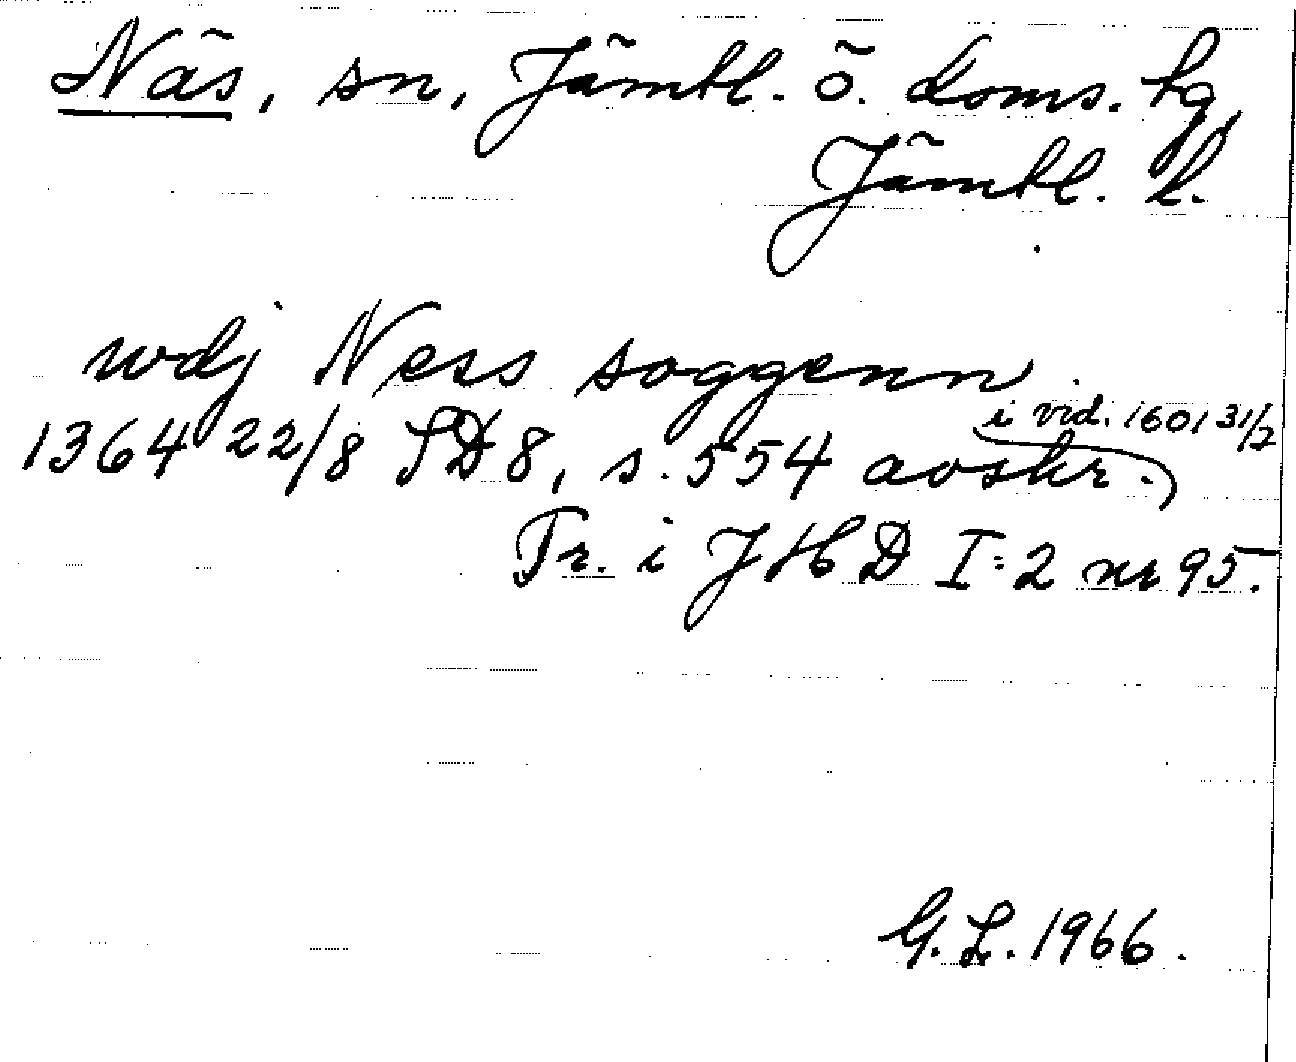 Näs, sn, Jämtl. ö. doms. hg,
Jämtl. l.
wdj Ness soggenn
1364 22/8 SD 8, s. 554 avskr.
i vid. 1601 31/2
Tr. i JHD I:2 nr 95.
G. L. 1966.